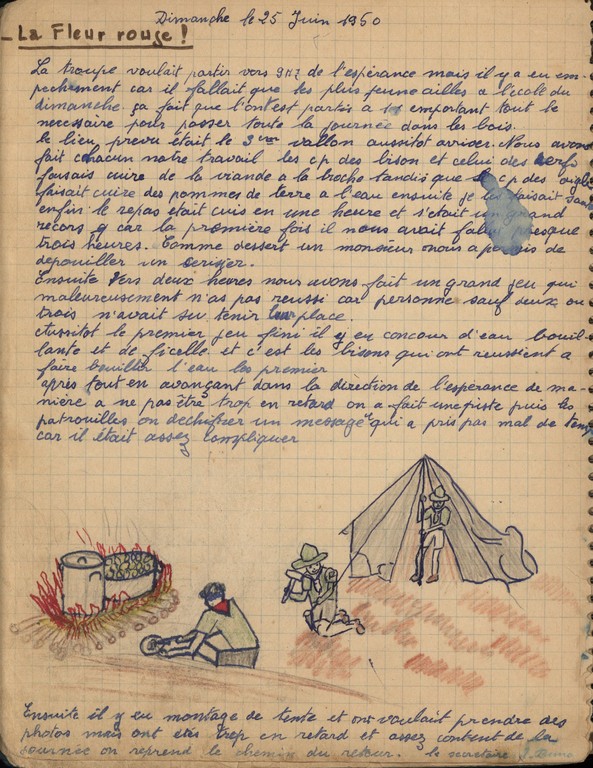 Dimanche le 25 Juin 1960
La Fleur rouge !
La troupe voulait partir vers 9H½ de l'espérance mais il y a eu em-
pechement car il fallait que les plus jeune ailles a l'école du
dimanche. ça fait que l'ont est partis a 11 emportant tout le
necessaire pour passer toute la journée dans les bois.
le lieu prevu était le vallon aussitot arriver. Nous avons
fait chacun notre travail les cp des bison et celui des cerfs
faisais cuire de la viande a la broche tandis que cp des aigle
faisait cuire des pommes de terre a l'eau ensuite je les faisait
enfin le repas était cuis en une heure et s'était un grand
recors y car la première fois il nous avait fallu presque
trois heures. Comme dessert un monsieur nous a permis de
depouiller un cerisier.
Ensuite vers deux heures nous avons fait un grand jeu qui
maleureusement n'as pas reussi car personne sauf deux ou
trois n'avait su tenir leur place.
Aussitot le premier jeu fini il y eu concour d'eau bouil-
lante et de ficelle. et c'est les bisons qui ont reussient a
faire bouiller l'eau les premier
après tout en avançant dans la direction de l'espérance de ma-
nière a ne pas être trop en retard on a fait une piste puis les
patrouilles on dechiffrer un message qui a pris pas mal de temp
car il était assez compliquer
Ensuite il y eu montage de tente et on voulait prendre des
photos mais ont étés trop en retard et assez content de la
journée on reprend le chemin du retour. le secretaire J.